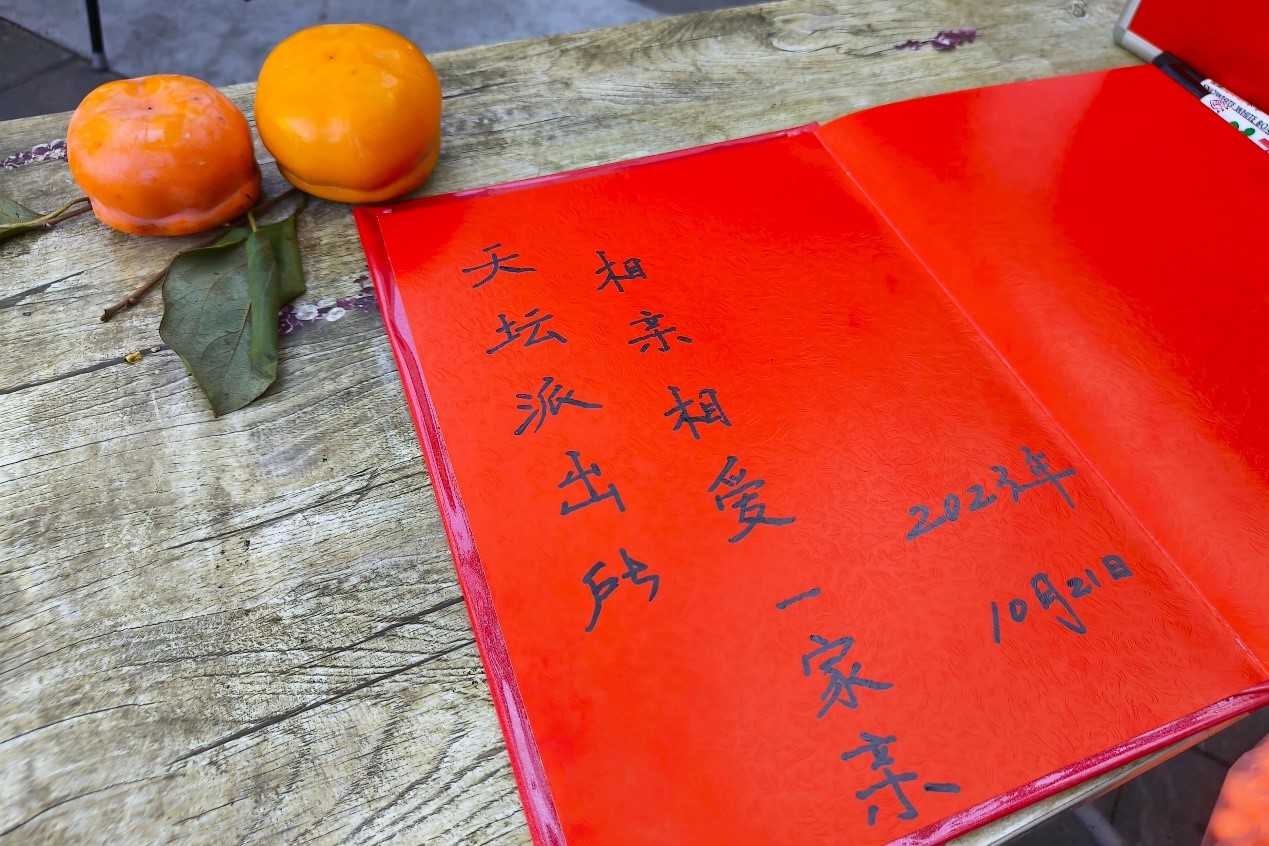 天坛派出所
相亲相爱一家亲
2023年
10月21日